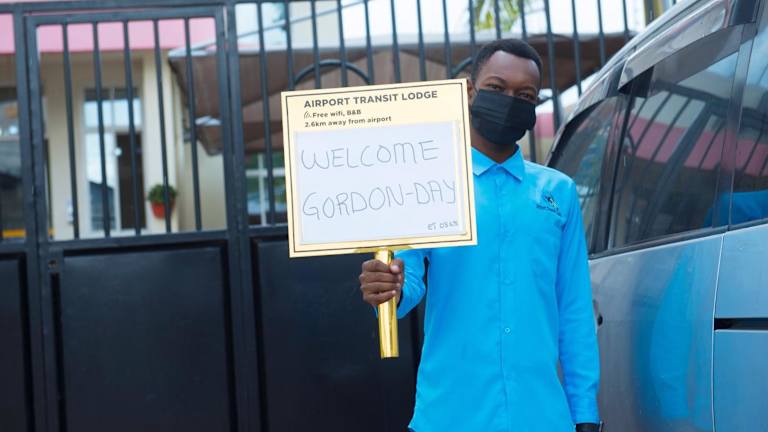 AIRPORT TRANSIT LODGE
Free wifi, B&B
2.6km away from airport
WELCOME
GORDON-DAY